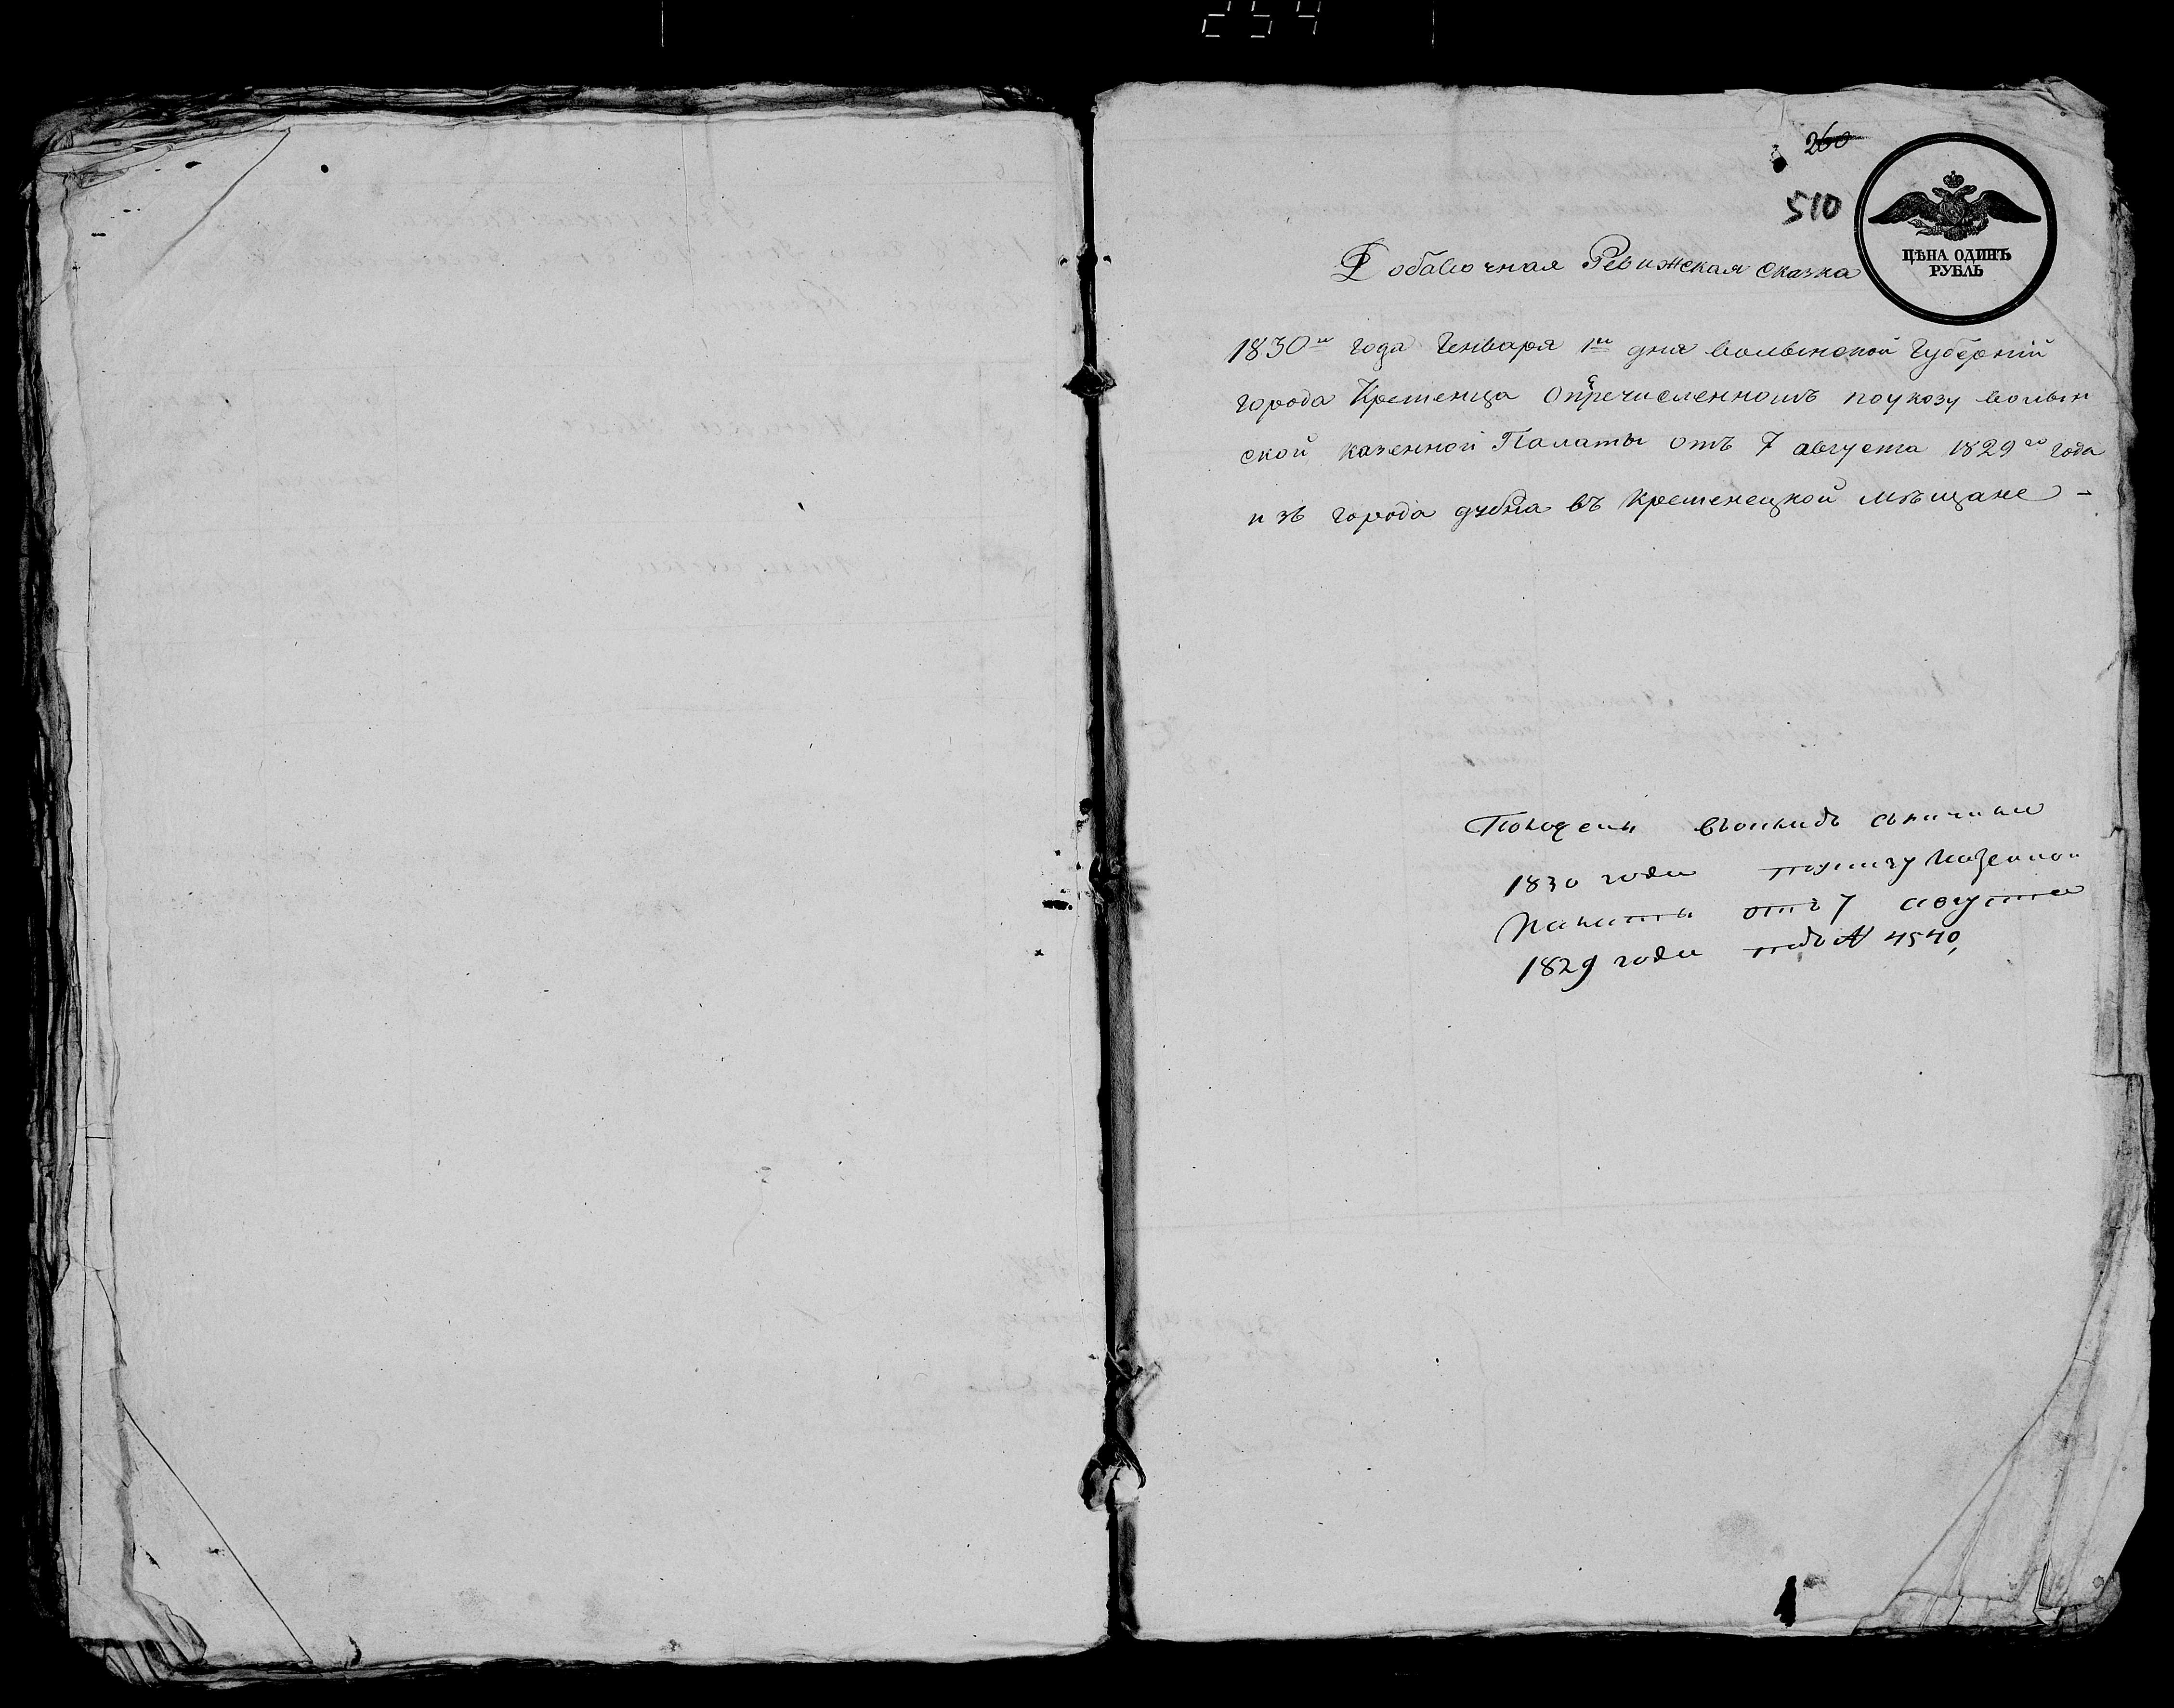 254
260
510
ЦѢНА ОДИНЪ
РУБЛЬ
Добавочная Ревижская сказка
1830го года Генваря 1го дня волынской Губерніи
города Кременца Опречисленномъ поуказу волын
ской казенной Палаты отъ 7 августа 1829го года
изъ города дубна въ Кременецкой мѣщане -
окладъ съ
1830 года Казенной
Палаты отъ 7 августа
1829 года подъ № 4540,